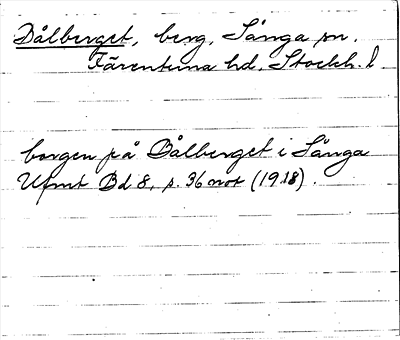 Dålberget, berg, Sånga sn.
Färentuna hd, Stockh. l.
borgen på Dålberget i Sånga
Ufmt Bd 8, s. 36 not (1918).